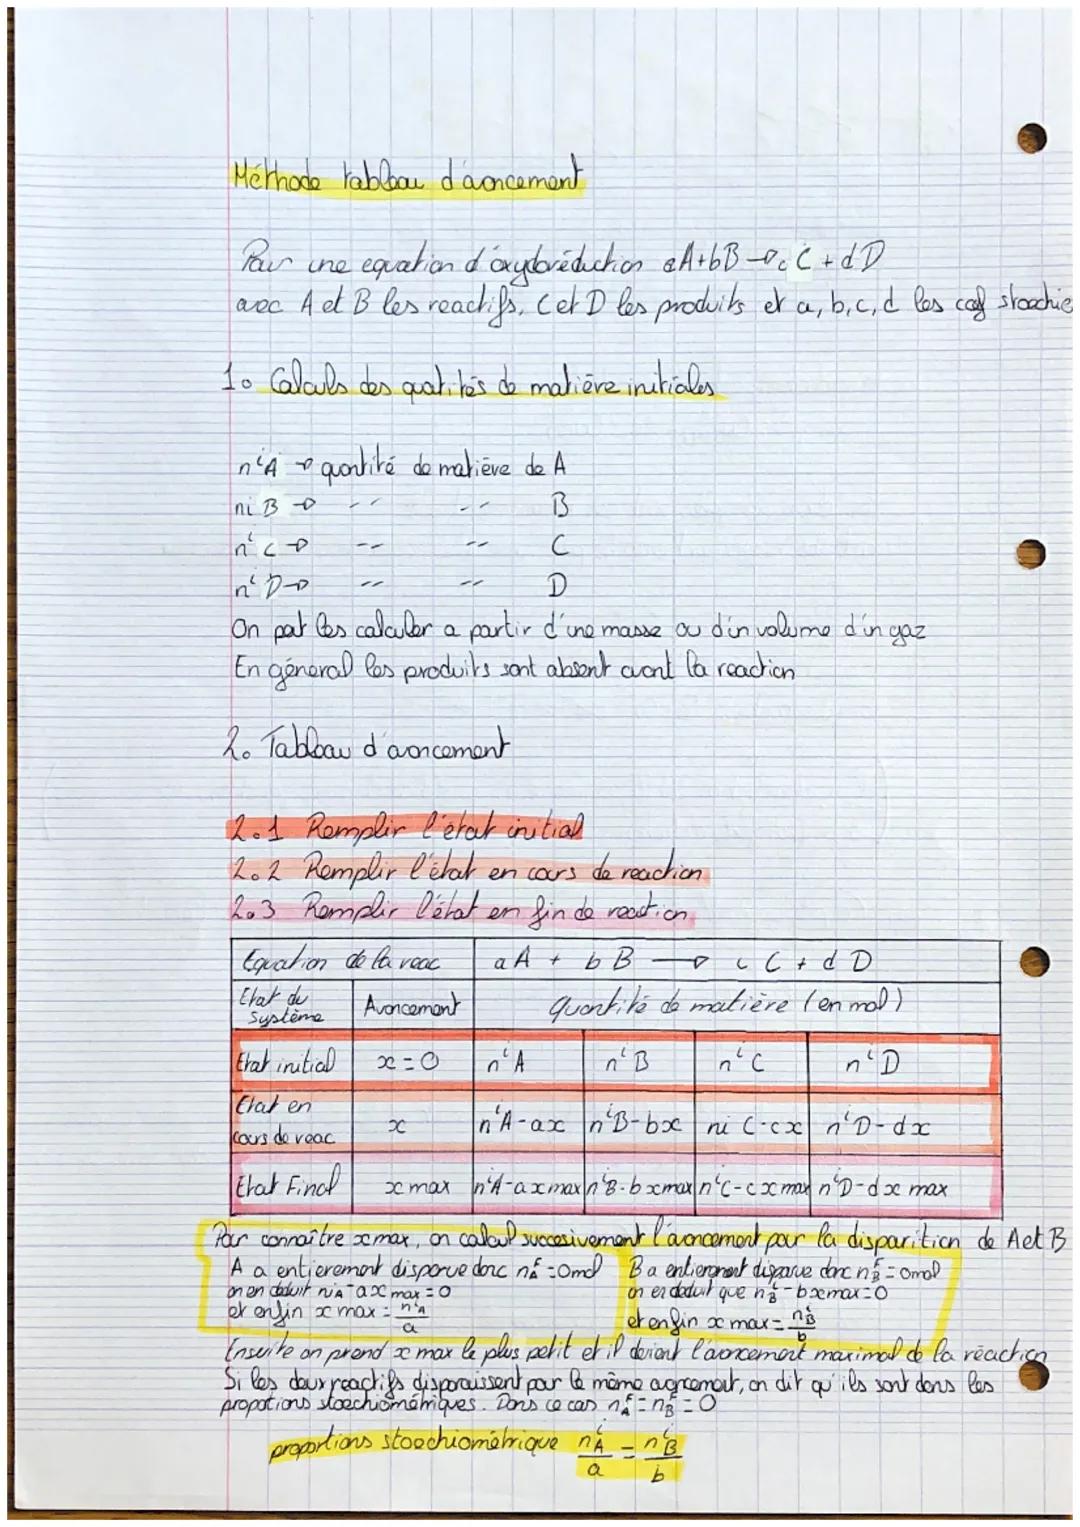 Méthode tableau d'avancement
Pour une equation d'oxydoréduction aA+bB → cC + dD
avec A et B les reactifs, C et D les produits et a, b, c, d les coef stoechio
1. Calculs des quatités de matière initiales
nⁱA → quantité de matière de A
ni B → -- -- B
nⁱ C → -- -- C
nⁱ D → -- -- D
On peut les calculer a partir d'une masse ou d'un volume d'un gaz
En géneral les produits sont absent avant la reaction
2. Tableau d'avancement
2.1 Remplir l'état initial
2.2 Remplir l'état en cours de reaction
2.3 Remplir l'état en fin de reaction
Equation de la reac aA + bB → cC + dD
Etat du système Avancement Quantité de matière (en mol)
Etat initial x = 0 nⁱA nⁱB nⁱC nⁱD
Etat en cours de reac x nⁱA-ax nⁱB-bx ni C-cx nⁱD-dx
Etat Final x max nⁱA-a x max nⁱB-b x max nⁱC-c x max nⁱD-d x max
Pour connaître x max, on calcul succesivement l'avancement pour la disparition de A et B
A a entierement disparue donc nᶠA = 0 mol
on en deduit niA - a x max = 0
et enfin x max = nⁱA/a
B a entierement disparue donc nᶠB = 0 mol
on en deduit que nⁱB - b x max = 0
et enfin x max = nⁱB/b
Ensuite on prend x max le plus petit et il devient l'avancement maximal de la réaction
Si les deux reactifs disparaissent pour le même avancement, on dit qu'ils sont dans les
propotions stoechiométriques. Dans ce cas nᶠA = nᶠB = 0
proportions stoechiométrique nⁱA/a = nⁱB/b